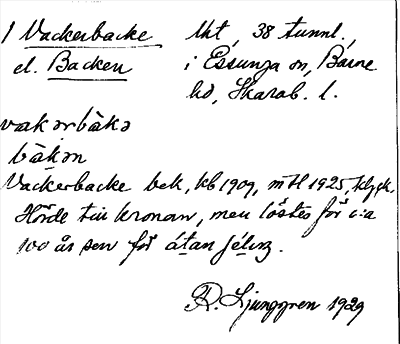 1 Vackerbacke lht, 38 tunnl.
el. Backen i Essunga sn, Barne
hd, Skarab. l.
vakərbàkə
bàkən
Vackerbacke bek, kb 1909, mtl 1925,
Hörde till kronan, men löstes för c:a
100 år sen för átan
R. Ljunggren 1929